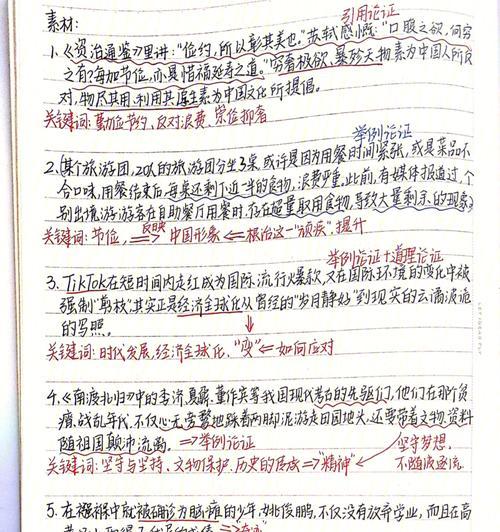 素材:
引用论证
1.《资治通鉴》里讲:"俭约,所以彰其美也。"苏轼感慨:"口腹之欲,何穷
之有?每加节俭,亦是惜福延寿之道。"穷奢极欲、暴殄天物素为中国人所反
对,物尽其用、利用其厚生素为中国文化所提倡。
关键词:勤俭节约、反对浪费、崇俭抑奢
举例论证
2.某个旅游团,20人的旅游团分坐3桌,或许是因为用餐时间紧张,或是菜品不
合口味,用餐结束后,每桌还剩下近一半的食物,浪费严重,此前,有媒体报道过,个
别出境游游客在自助餐厅用餐时,存在超量取用食物,导致大量剩余的现象。
关键词:节俭,反映⇒中国形象⇐根治这一"顽疾",提升
举例论证+道理论证
3.TikTok在短时间内走红成为国际流行火爆款,又在国际环境的变化中被
强制"剪枝"其实正是经济全球化从曾经的"岁月静好"到现实的云涌波诡
的写照。
关键词:时代发展,经济全球化,"变"⇐如何应对
4.《南渡北归》中的李济、董作宾等我国现代考古的先驱们,他们在那个贫
瘠、战乱年代,不仅心无旁骛地踩着两脚泥游走田园地头,还要带着文物、资料
随祖国颠沛流离。⇒举例论证
坚守梦想,
关键词:坚守与坚持、文物保护、历史的⇒"精神"
不随波逐流
5.在襁褓中就被确诊为脑瘫的少年姚俊鹏,不仅没有放弃学业,而且在高